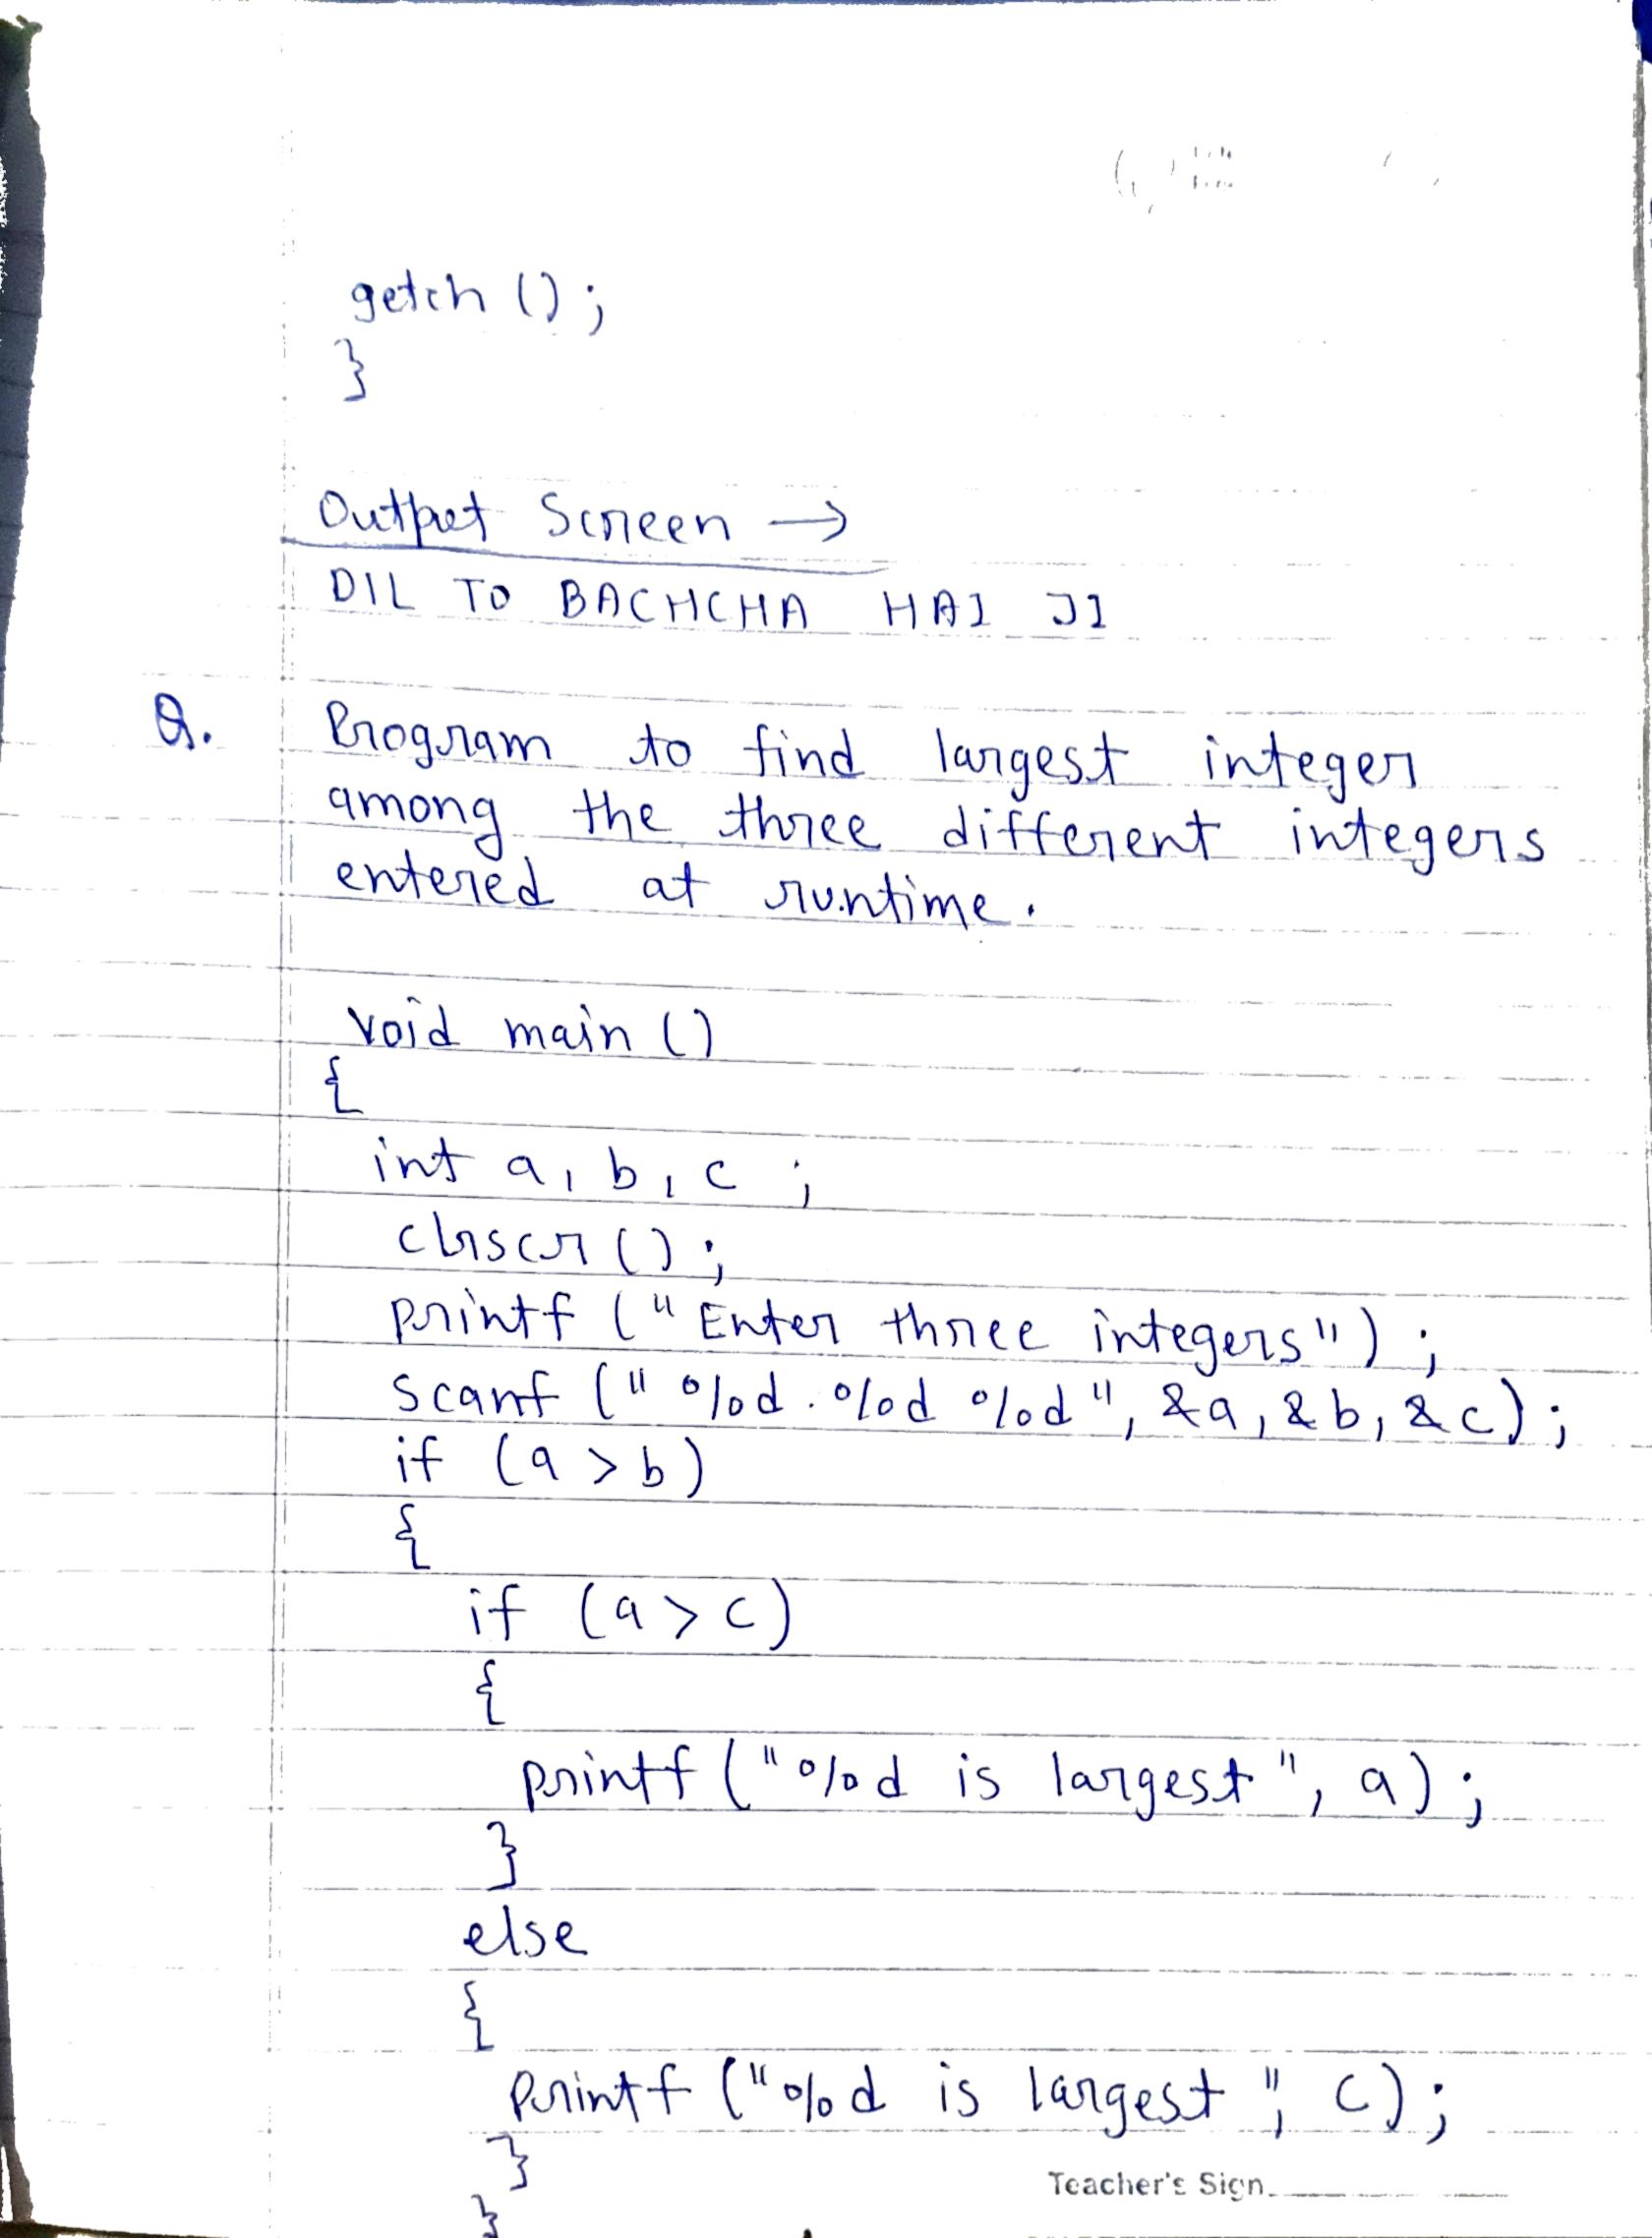 getch ();
}
Output Screen →
DIL TO BACHCHA HAI JI
Q. Program to find largest integer
among the three different integers
entered at runtime.
void main ()
{
int a, b, c ;
clrscr () ;
printf ("Enter three integers") ;
scanf ("%d %d %d", &a, &b, &c) ;
if (a > b)
{
if (a > c)
{
printf ("%d is largest", a) ;
}
else
{
printf ("%d is largest", c) ;
}
}
Teacher's Sign.